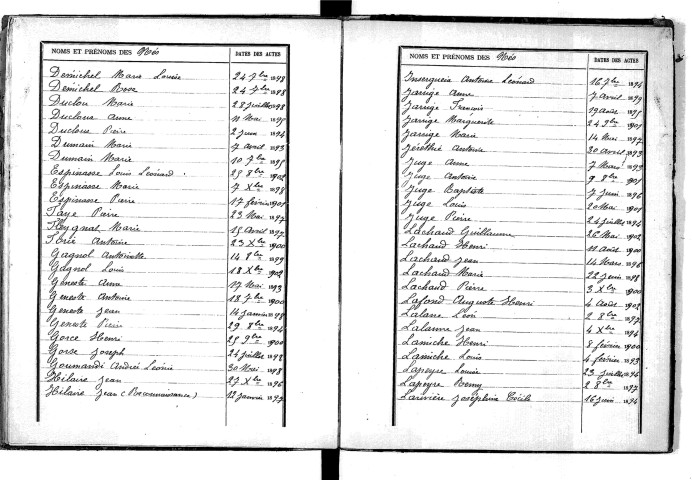 NOMS ET PRÉNOMS DES Nés DATES DES ACTES
Demichel Marie Louise 24 7bre 1898
Demichel Rose 24 7bre 1898
Duclou Marie 28 juillet 1898
Duclous Anne 11 Mai 1895
Duclous Pierre 2 juin 1894
Dumain Marie 7 avril 1893
Dumain Marie 10 7bre 1895
Espinasse Louis Léonard 25 8bre 1902
Espinasse Marie 7 Xbre 1898
Espinasse Pierre 17 février 1901
Faye Pierre 23 Mai 1897
Feygnat Marie 15 Avril 1897
Forie Antoine 23 Xbre 1900
Gagnol Antoinette 14 8bre 1899
Gagnol Louis 18 Xbre 1902
Geneste Anne 17 Mai 1893
Geneste Antoine 18 7bre 1900
Geneste Jean 14 janvier 1898
Geneste Pierre 29 8bre 1894
Gorce Henri 25 9bre 1900
Gorse Joseph 24 juillet 1892
Goumandi André Léonie 30 Mai 1898
Hilaire Jean 27 Xbre 1896
Hilaire Jean (Reconnaissance) 12 janvier 1897
NOMS ET PRÉNOMS DES Nés DATES DES ACTES
Antoine Léonard 16 7bre 1894
Jarrige Anne 7 Avril 1899
Jarrige François 19 Août 1895
Jarrige Marguerite 24 9bre 1901
Jarrige Marie 14 Mai 1897
Antoine 30 Avril 1893
Juge Anne 7 Mars 1899
Juge Antoine 9 8bre 1901
Juge Baptiste 7 juin 1896
Juge Louis 20 Mai 1901
Juge Pierre 24 juillet 1894
Lachaud Guillaume 26 Mai 1902
Lachaud Henri 11 Août 1900
Lachaud Jean 14 Mars 1896
Lachaud Marie 22 juin 1898
Lachaud Pierre 3 Xbre 1900
Lafond Auguste Henri 4 Août 1902
Lalane Léon 2 8bre 1897
Lalanne Jean 4 Xbre 1894
Lamiche Henri 8 février 1900
Lamiche Louis 4 février 1893
Lapeyre Louise 23 juillet 1896
Lapeyre Remy 2 8bre 1897
Larivière Joséphine Cécile 16 juin 1894